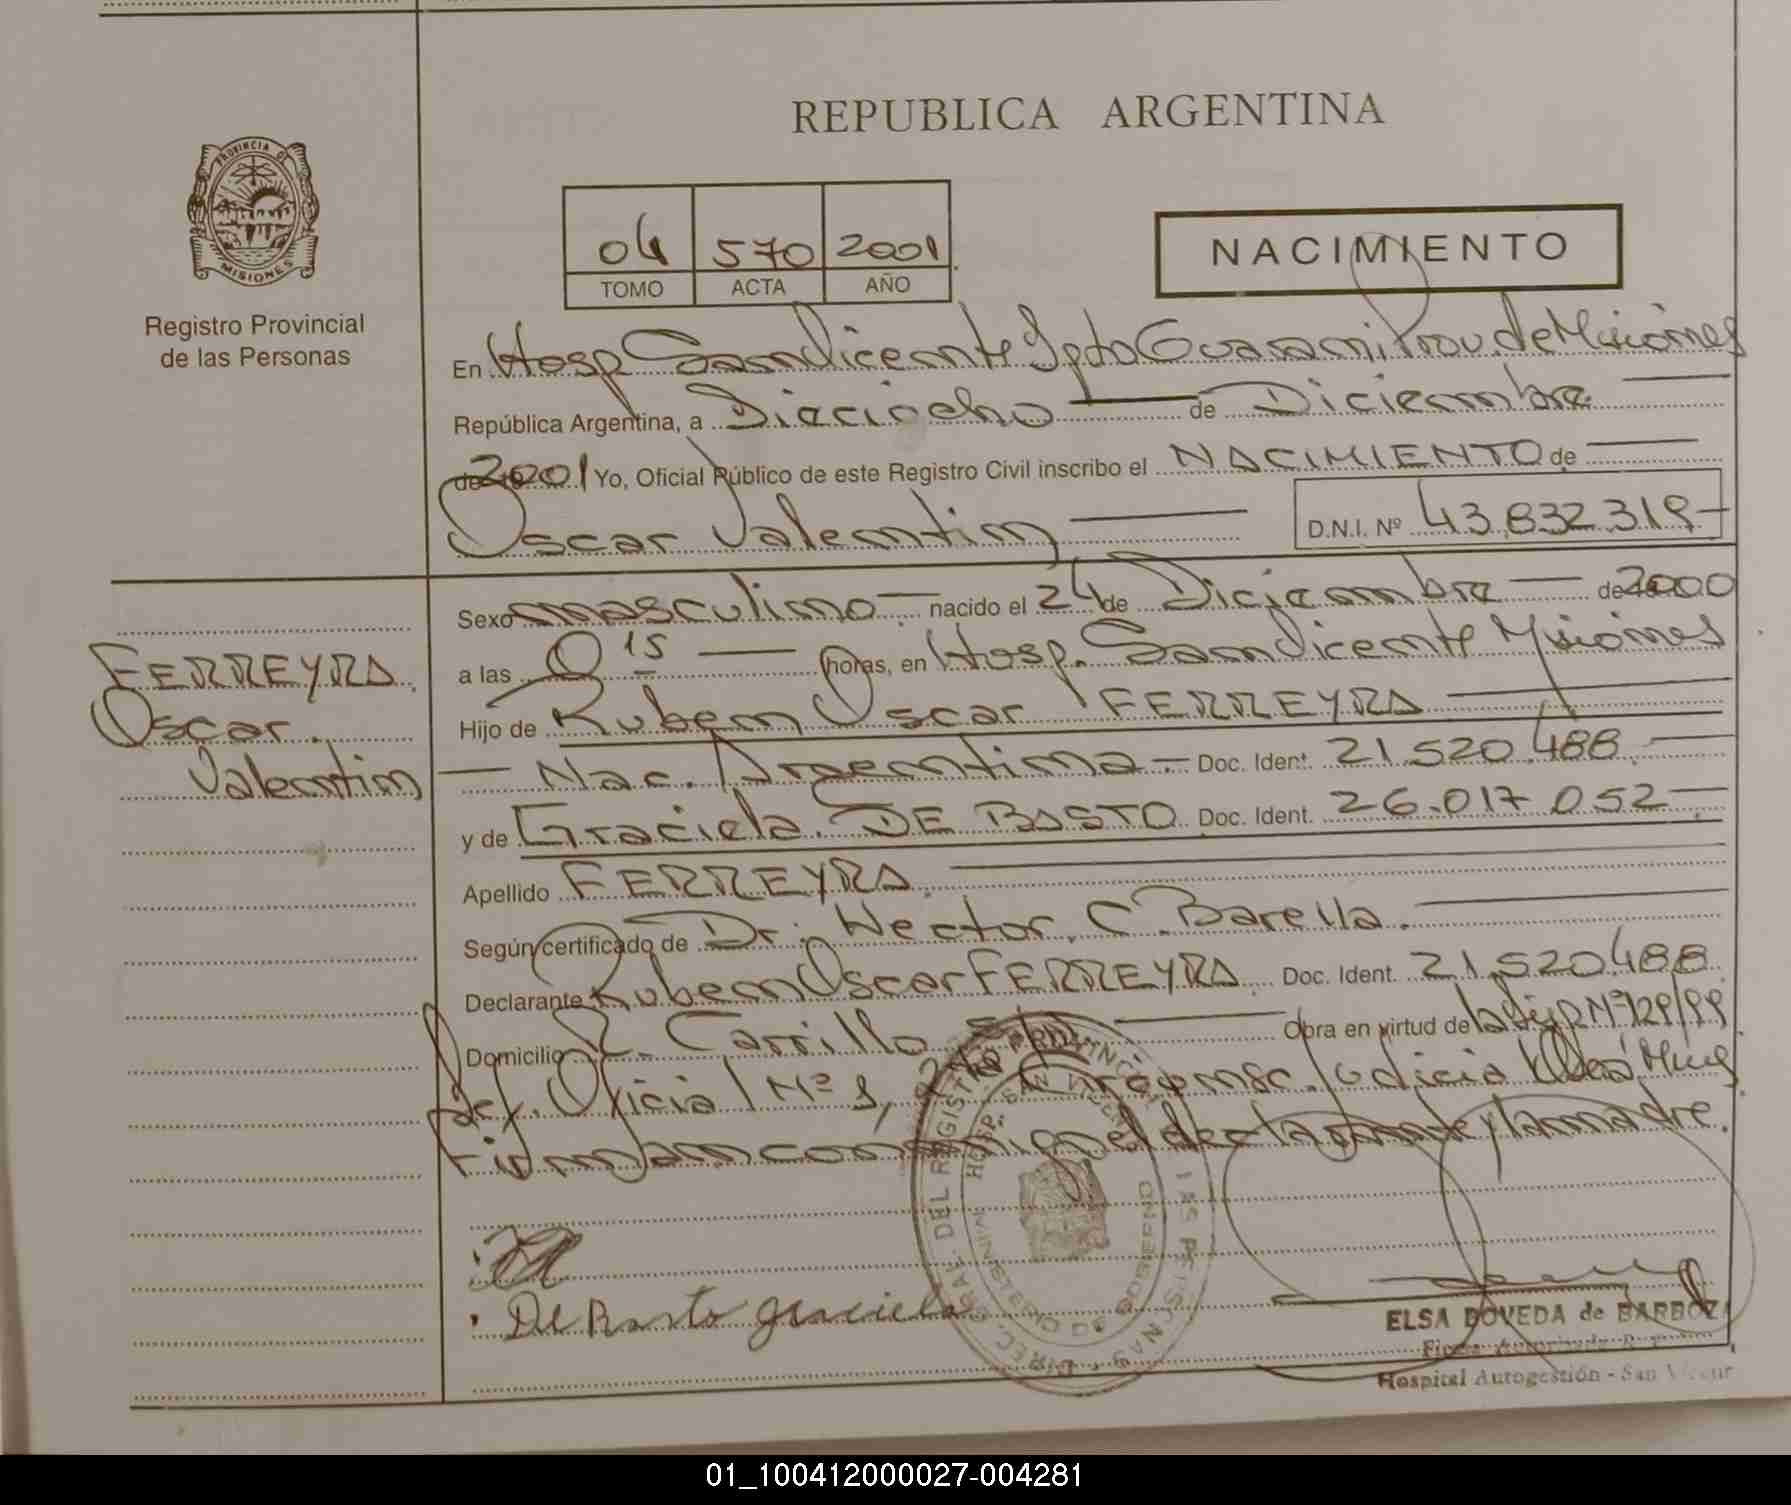 REPUBLICA ARGENTINA
PROVINCIA DE
MISIONES
Registro Provincial
de las Personas
04 570 2001
TOMO ACTA AÑO
NACIMIENTO
En Hosp San Vicente Dpto Guarani, Prov. de Misiones
República Argentina, a Dieciocho de Diciembre
de 2001 Yo, Oficial Público de este Registro Civil inscribo el NACIMIENTO de
Oscar Valentin D.N.I. Nº 43.832.319
Sexo masculino nacido el 24 de Diciembre de 2000
a las 0 15 horas, en Hosp. San Vicente Misiones
Hijo de Ruben Oscar FERREYRA
Nac. Argentina Doc. Ident. 21.520.488
y de Graciela DE BASTO Doc. Ident. 26.017.052
Apellido FERREYRA
Según certificado de Dr. Hector C. Barella.
Declarante Ruben Oscar FERREYRA Doc. Ident. 21.520.488
Domicilio R. Carrillo Obra en virtud de la Nº 129/99
Def. Oficial Nº 1,
Firman con el declarante y la madre.
FERREYRA
Oscar
Valentin
De Basto Graciela
ELSA BOVEDA de BARBOZA
Hospital Autogestión - San
01_100412000027-004281